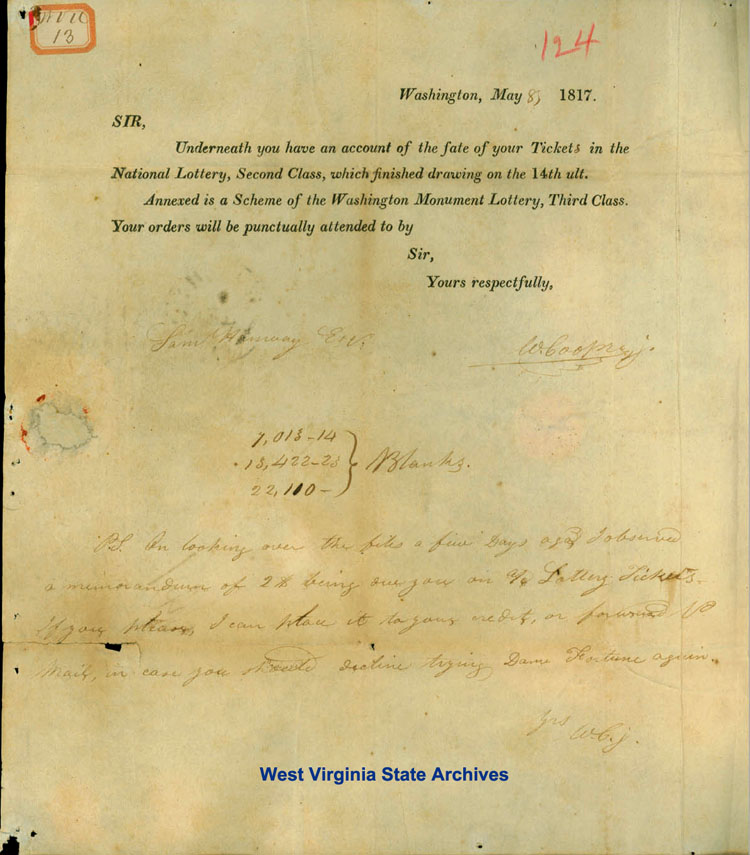 13
124
Washington, May 8, 1817.
SIR,
Underneath you have an account of the fate of your Tickets in the
National Lottery, Second Class, which finished drawing on the 14th ult.
Annexed is a Scheme of the Washington Monument Lottery, Third Class.
Your orders will be punctually attended to by
Sir,
Yours respectfully,
Saml Hanway Esq.
W. Cooper j.
7,013-14
13,422-23
22,110-
Blanks.
P.S. In looking over the files a few Days ago I observed
a memorandum of 2$ being due you on a/c Lottery Tickets.
If you please, I can place it to your credit, or forward P
Mail, in case you should decline trying Dame Fortune again.
Yrs
W.C.j.
West Virginia State Archives